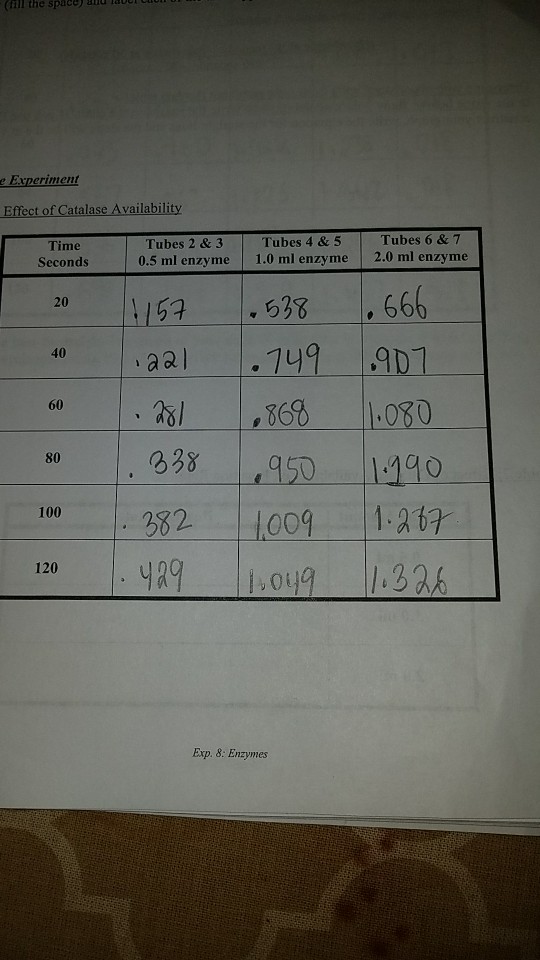 (fill the space) and label each of the
e Experiment
Effect of Catalase Availability
Time Seconds Tubes 2 & 3 0.5 ml enzyme Tubes 4 & 5 1.0 ml enzyme Tubes 6 & 7 2.0 ml enzyme
20 .157 .538 .666
40 .221 .749 .907
60 .281 .868 1.080
80 .338 .950 1.190
100 .382 1.009 1.267
120 .429 1.049 1.326
Exp. 8: Enzymes